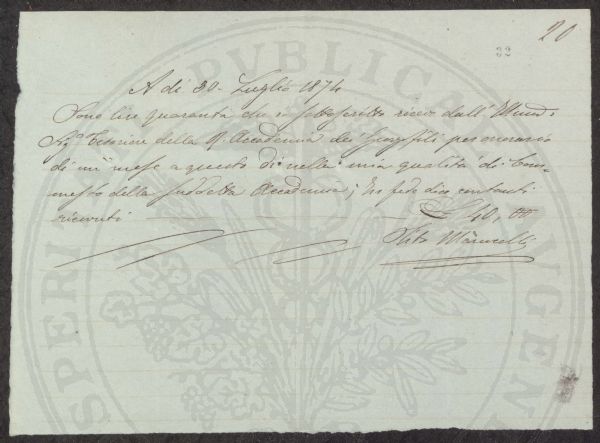 20
32
A dì 30. Luglio 1874
Sono lire quaranta che io sottoscritto ricevo dall' Illmo:
Sig.e Tesoriere della R. Accademia dei Georgofili per onorario
di un mese a questo dì nella mia qualità di Com-
messo della suddetta Accademia; In fede dico contanti
ricevuti £ 40, 00
Marucelli
PROSPERITATI REIPUBLICAE AUGENDAE